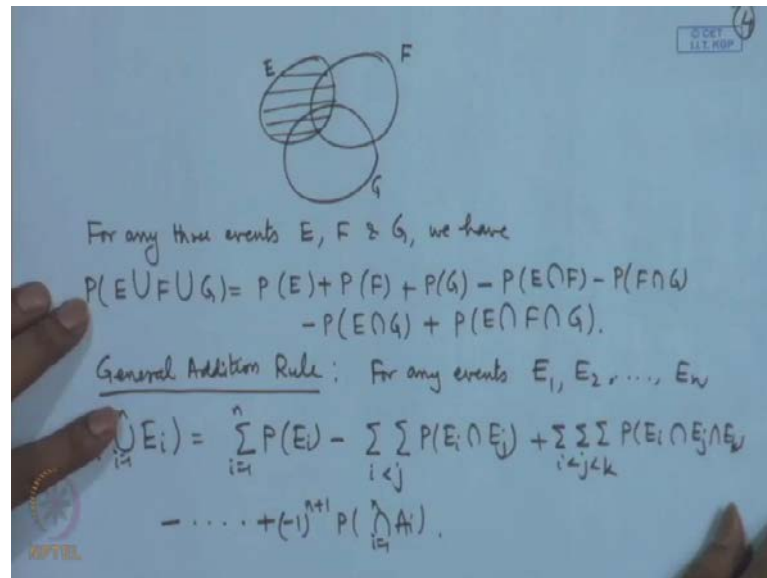 4
© CET
I.I.T. KGP
E F
G
For any three events E, F & G, we have
P(E∪F∪G) = P(E) + P(F) + P(G) − P(E∩F) − P(F∩G)
− P(E∩G) + P(E∩F∩G).
General Addition Rule : For any events E₁, E₂, ..., Eₙ
⋃ᵢ₌₁ⁿ Eᵢ) = ∑ᵢ₌₁ⁿ P(Eᵢ) − ∑∑_{i<j} P(Eᵢ∩Eⱼ) + ∑∑∑_{i<j<k} P(Eᵢ∩Eⱼ∩Eₖ
− ..... + (−1)ⁿ⁺¹ P(⋂ᵢ₌₁ⁿ Aᵢ).
NPTEL